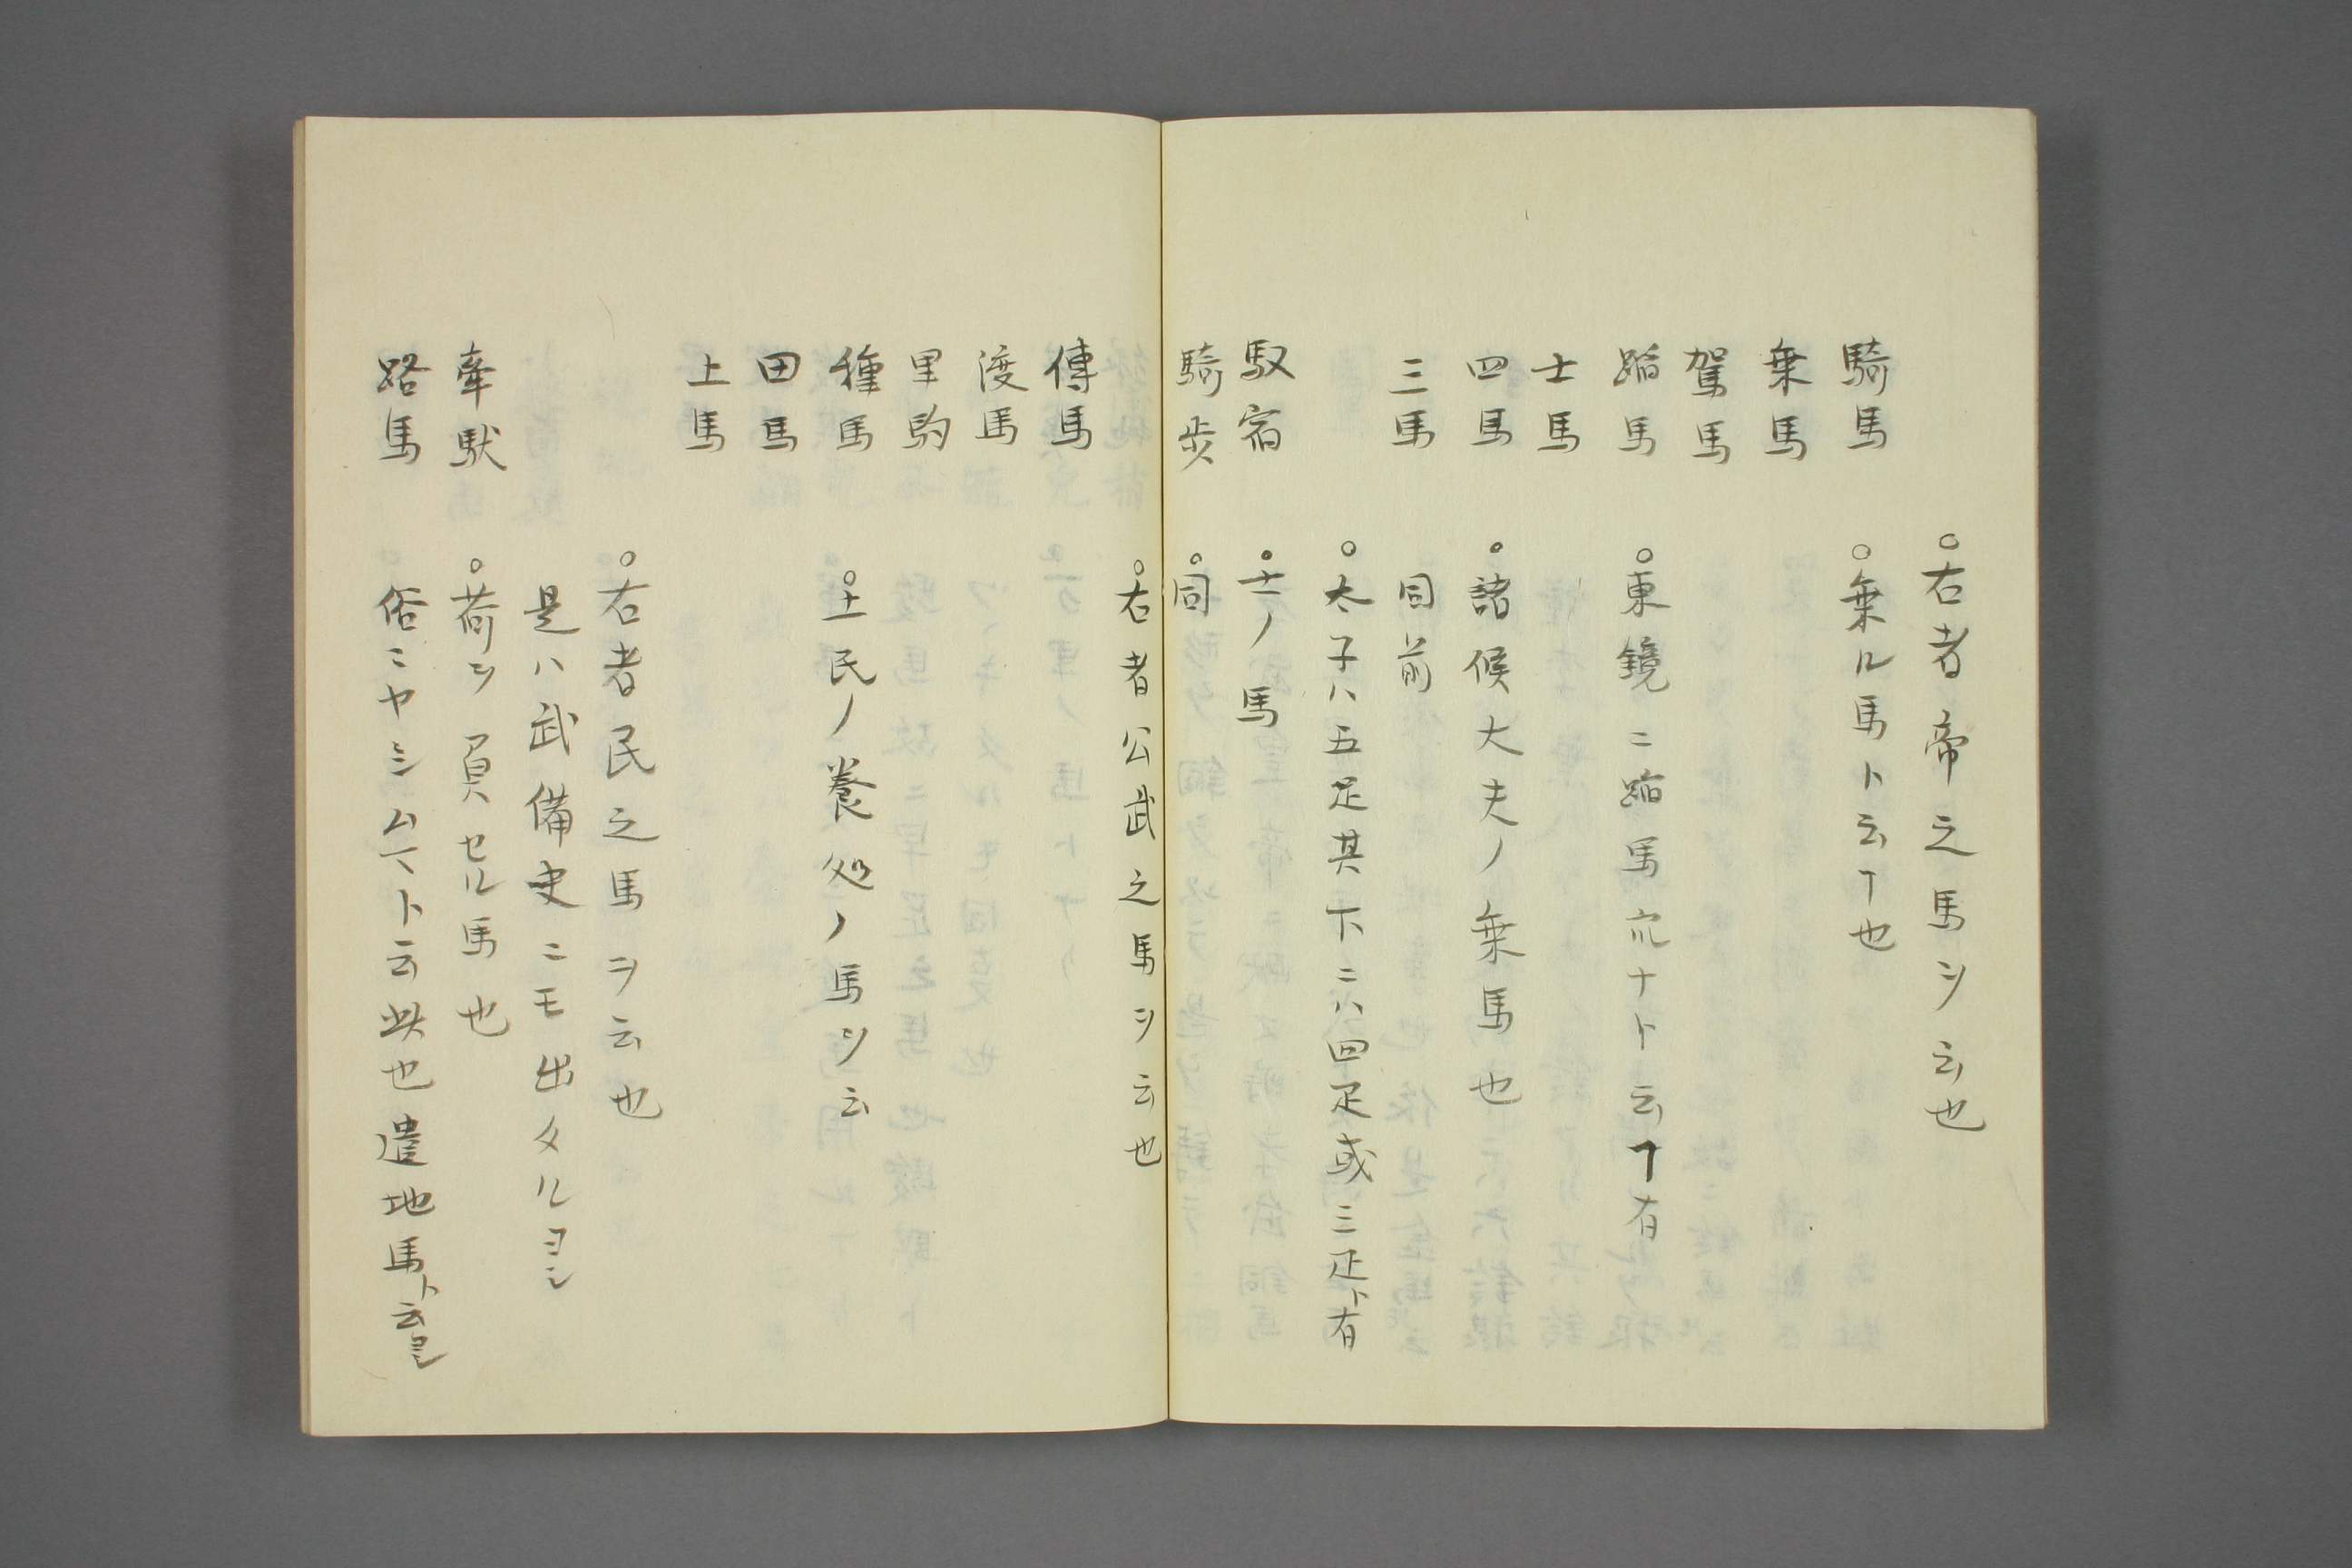 ○右者帝之馬ヲ云也
騎馬　○乗ル馬ト云ヿ也
乗馬
駕馬
蹈馬　○東鏡ニ蹈馬宍ナト云ヿ有
士馬
四馬　○諸侯大夫ノ乗馬也
三馬　同前
○太子ハ五疋其下ニハ四疋或三疋ト有
馭宿　○士ノ馬
騎歩　○同
○右者公武之馬ヲ云也
傳馬
渡馬
里駒
種馬　○土民ノ養処ノ馬ヲ云
田馬
上馬
○右者民之馬ヲ云也
是ハ武備史ニモ出タルヨシ
牽馱　○荷ヲ負セル馬也
路馬　俗ニヤシムマト云此也遣地馬ト云ヨシ